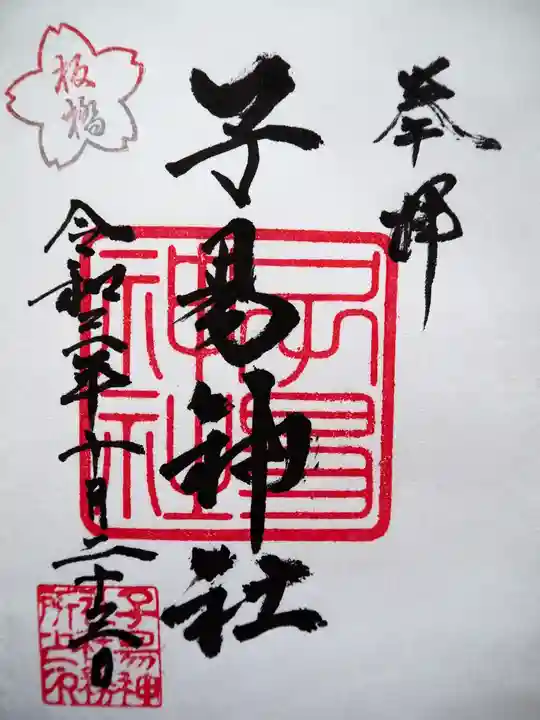 奉拝
子易神社
板橋
令和二年十月二十三日
子易神社